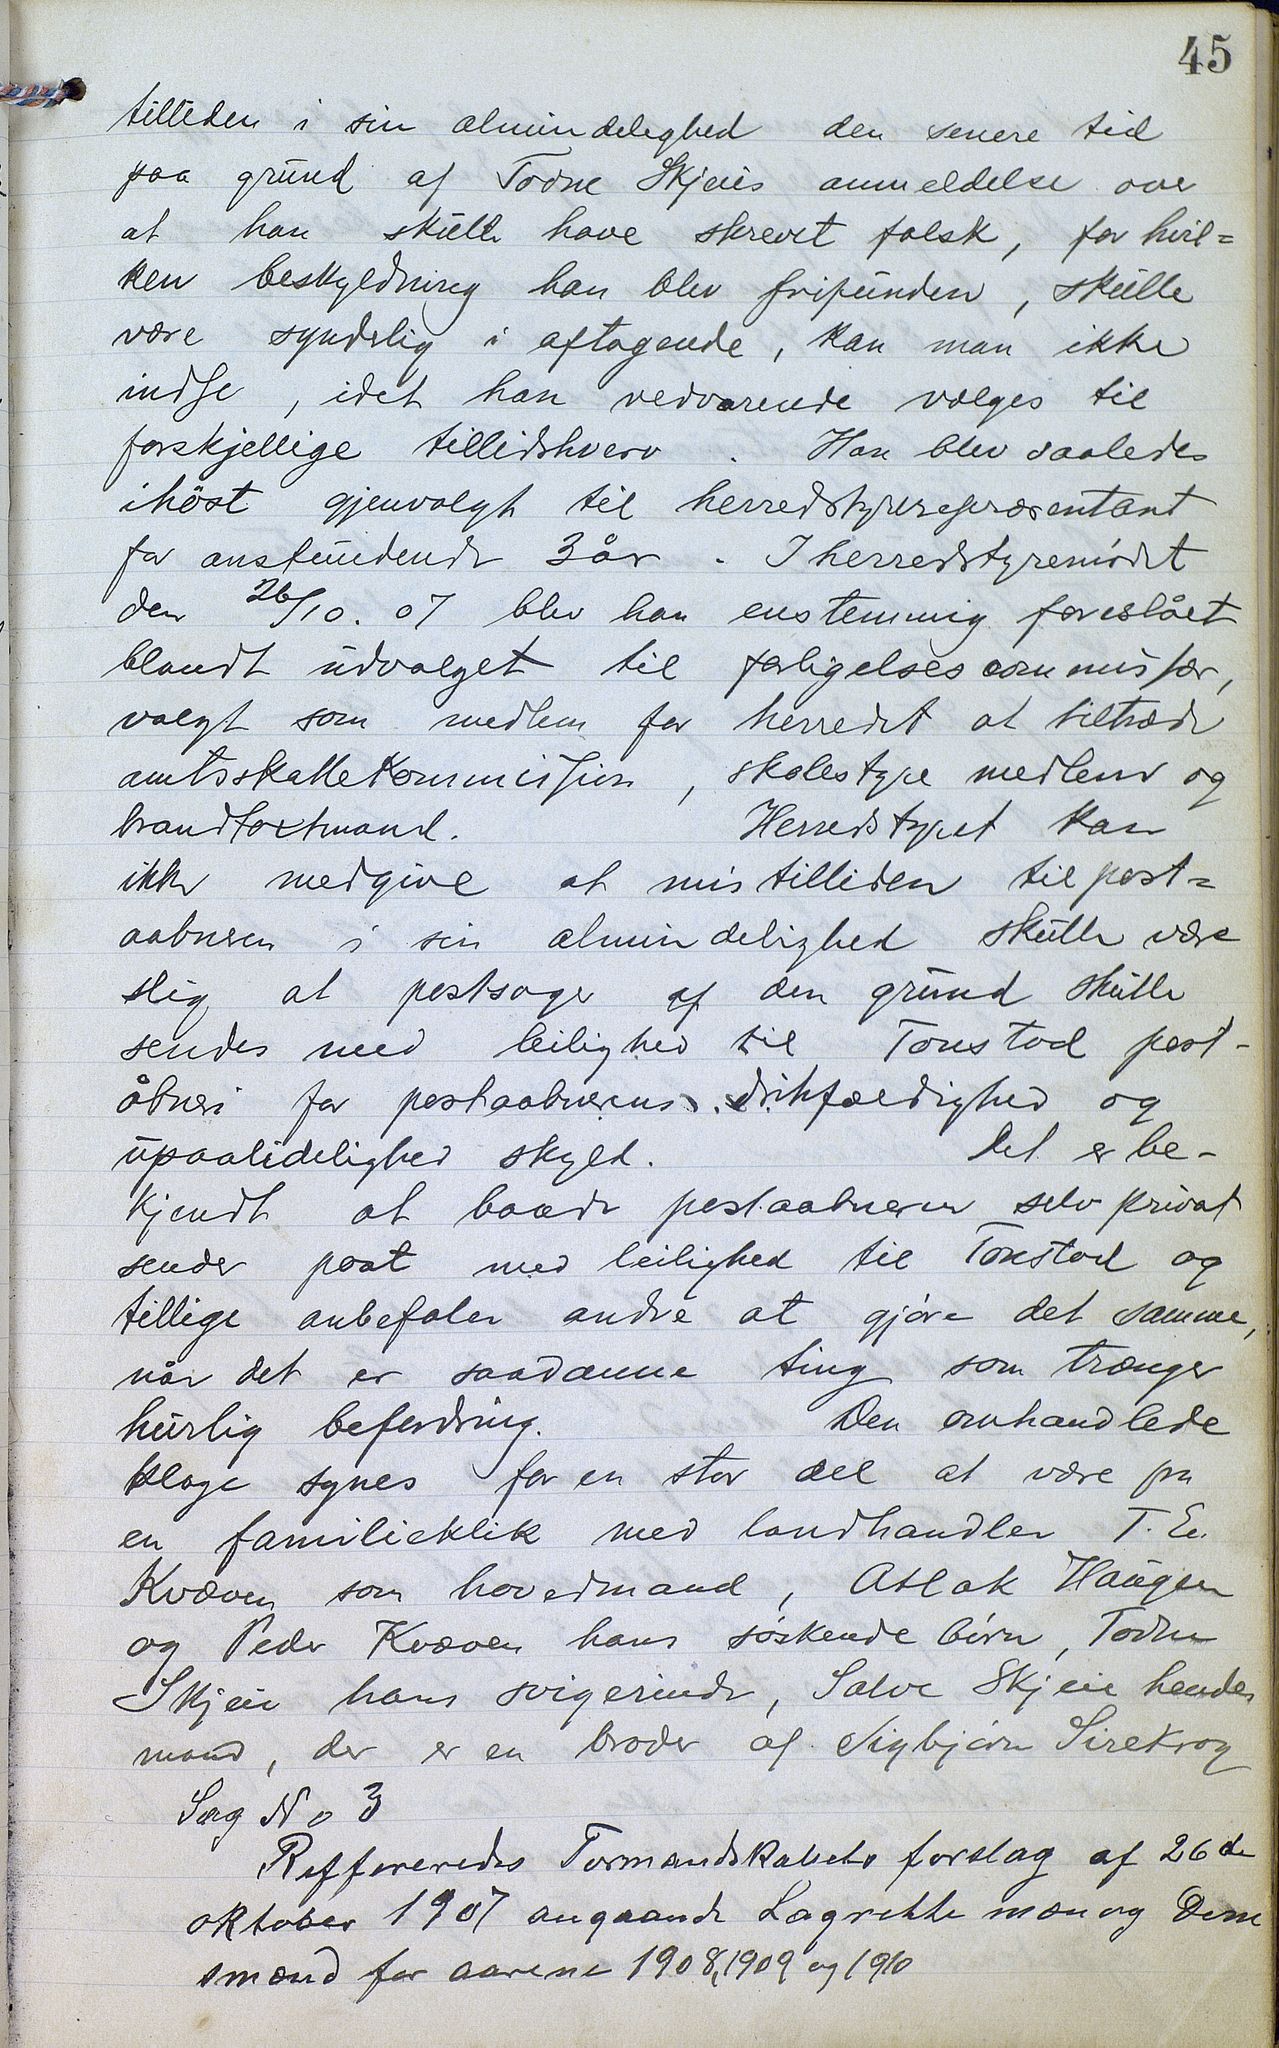 45
tilliden i sin almindelighed den senere tid
paa grund af Todne Skjeies anmeldelse over
at han skulle have skrevet falsk, for hvil=
ken beskyldning han blev frifunden, skulle
være synderlig i aftagende, kan man ikke
indse, idet han vedvarende vælges til
forskjellige tillidshverv. Han blev saaledes
ihöst gjenvalgt til herredstyrerepræsentant
for anstundende 3 år. I herredstyremödet
den 26/10.07 blev han enstemmig foreslået
blandt udvalget til forligelsescommissær,
valgt som medlem for herredet at tiltræde
amtsskattekommissjon, skolestyre medlem og
brandtaxtmand. Herredstyret kan
ikke medgive at mistilliden til post=
aabneren i sin almindelighed skulle være
slig at postsager af den grund skulle
sendes med leilighed til Tonstad post-
åbneri for postaabnerens drikfældighed og
upaalidelighed skyld. Det er be-
kjendt at baade postaabneren selv privat
sender post med leilighed til Tonstad og
tillige anbefaler andre at gjøre det samme,
når det er saadanne ting som trænger
hurlig befordring. Den omhandlede
klage synes for en stor del at være fra
en familieklik med landhandler T. E.
Kvæven som hovedmand, Aslak Haugen
og Peder Kvæven hans söskendebörn, Todne
Skjeie hans svigerinde, Salve Skjeie hendes
mand, der er en broder af Sigbjörn Sirekrog
Sag No 3
Reffereredes Formandskabets forslag af 26de
oktober 1907 angaaende Lagrette mæn og Dom
smænd for aarene 1908, 1909 og 1910